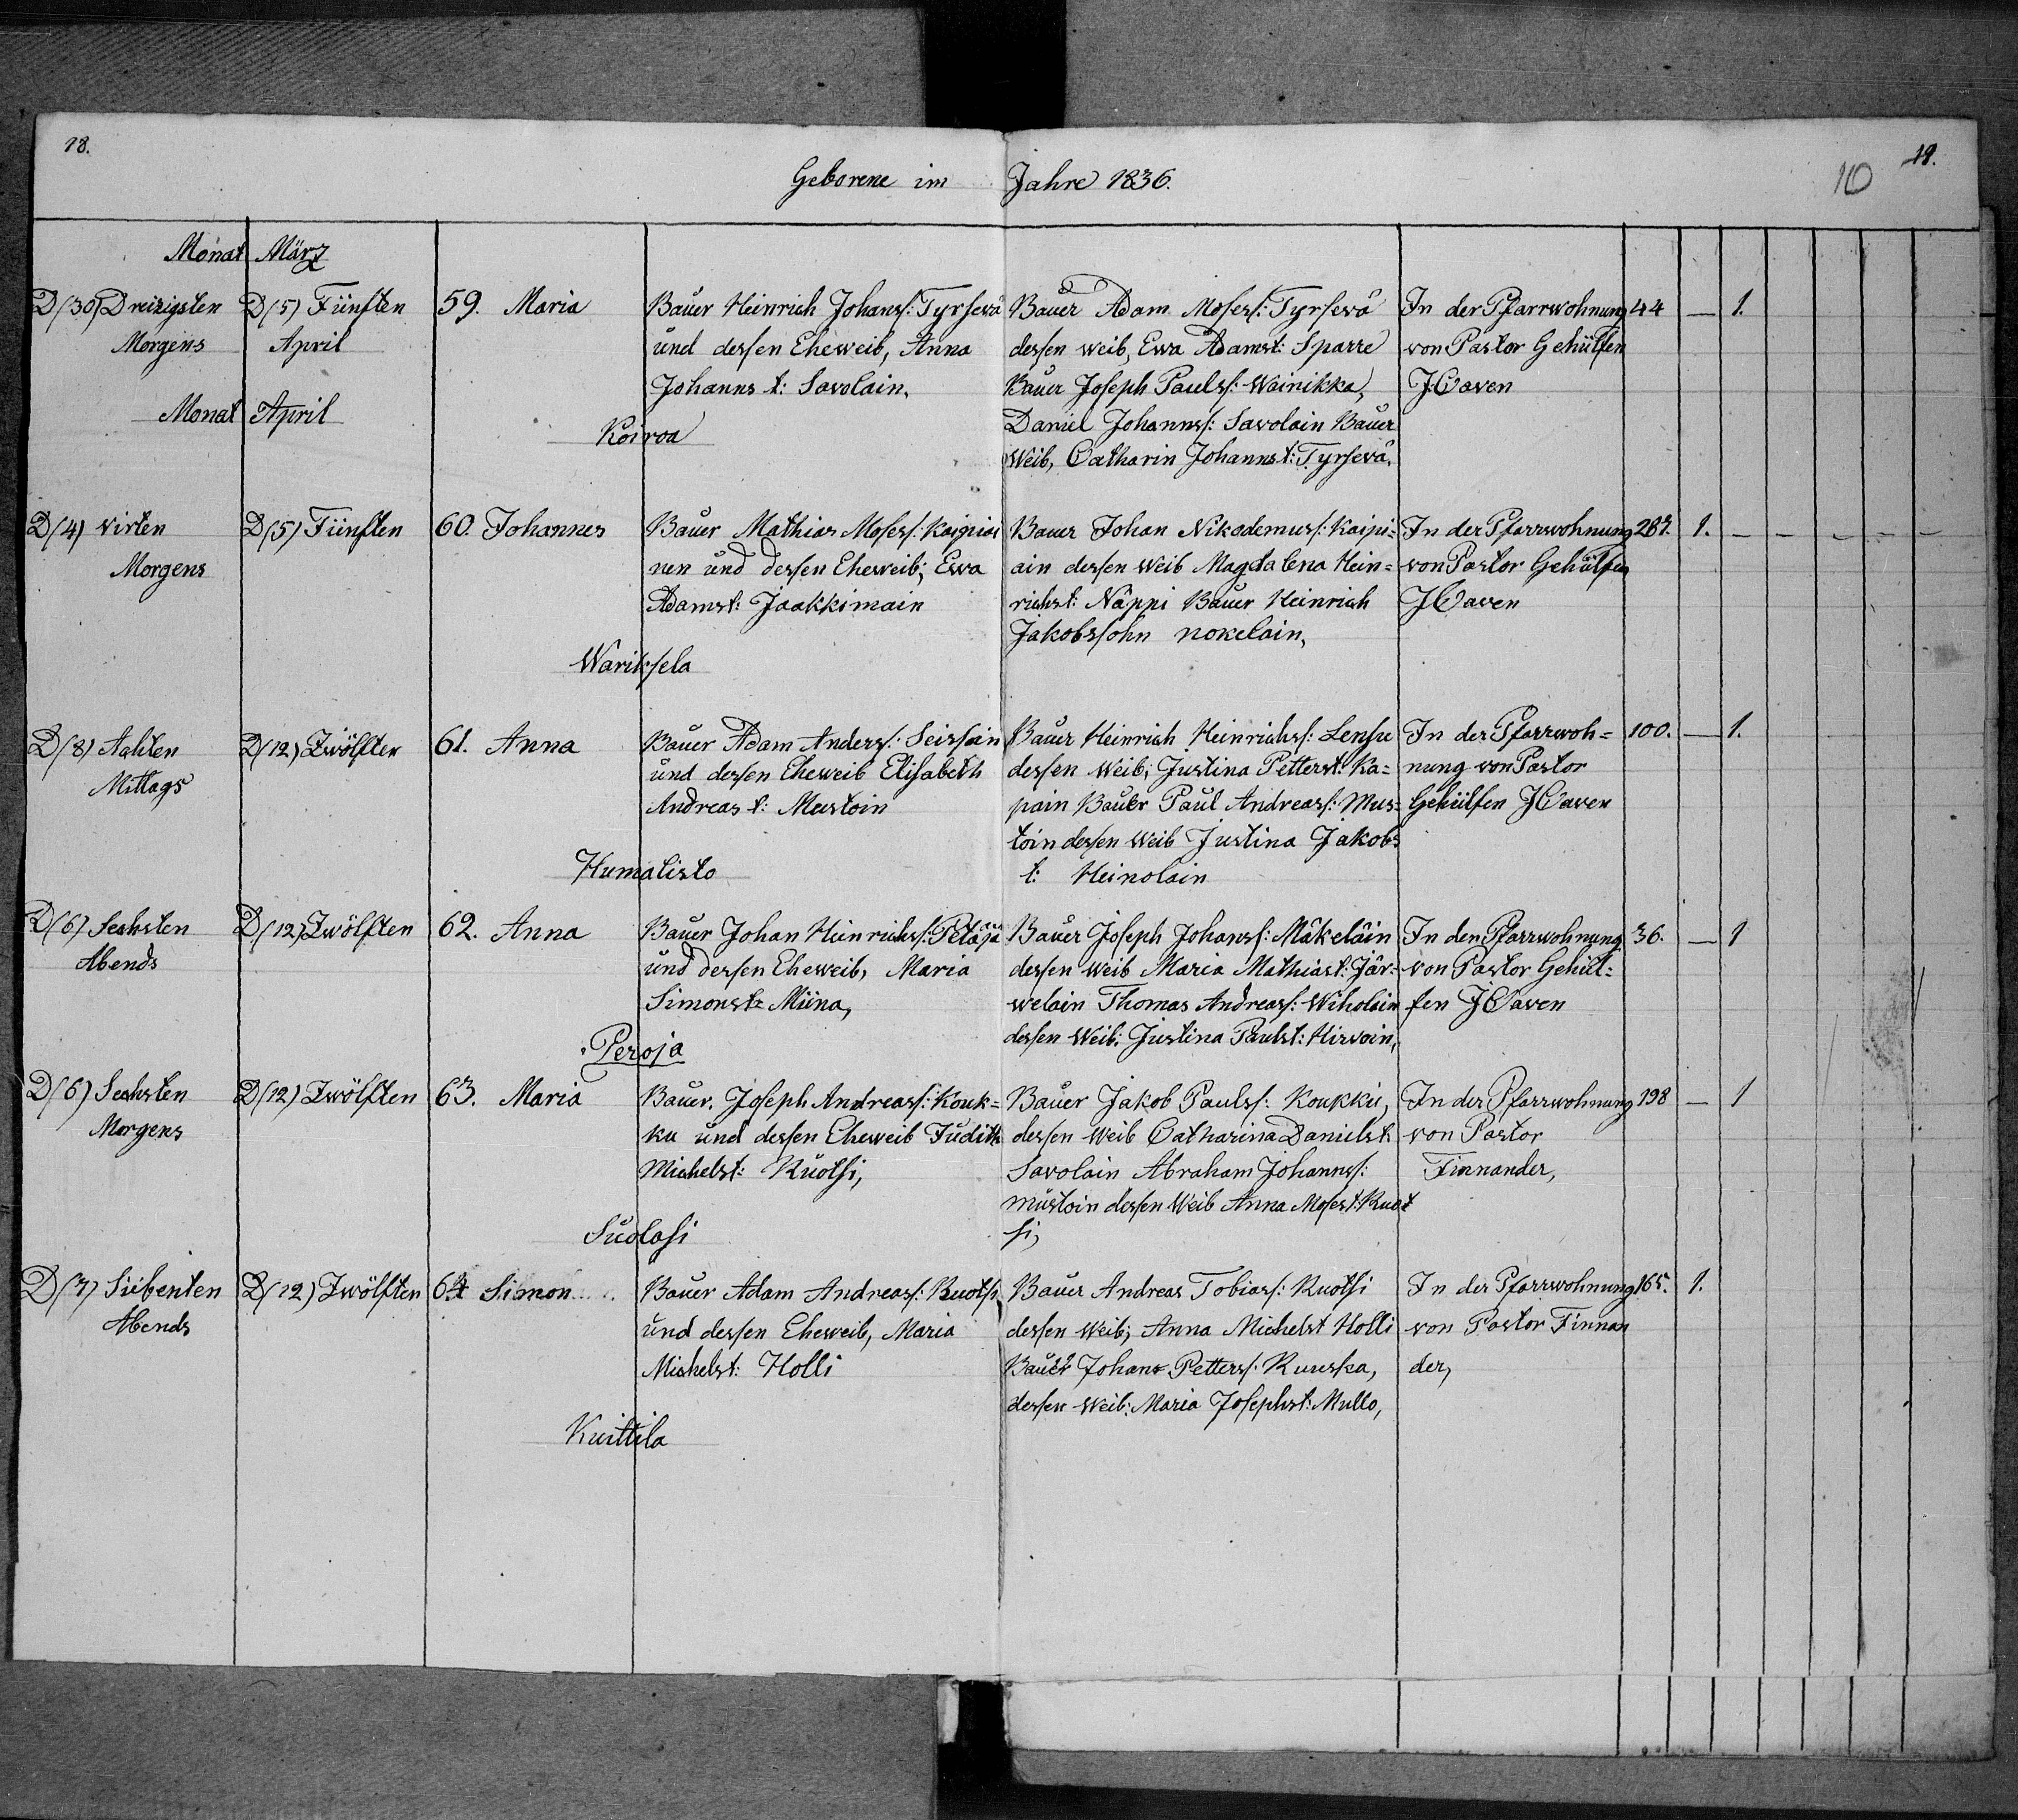 18.
19.
10
Geborene im Jahre 1836.
Monat März
D(30) Dreizigsten D(5) Fünften 59. Maria Bauer Heinrich Johans/: Tyrsevä Bauer Adam Moses/: Tyrsevä In der Pfarrwohnung 44 — 1.
Morgens April und dessen Eheweib, Anna dessen weib, Ewa Adamst: Sparre von Pastor Gehülfen
Johanns t: Savolain, Bauer Joseph Pauls/: Wainikka, J. Caven
Monat April Daniel Johanns/: Savolain Bauer
Koiroa
Weib, Catharin Johannst: Tyrsevä.
D(4) virten D(5) Fünften 60. Johannes Bauer Mathias Moses/: Kaipiai Bauer Johan Nikodemus/: Kaipi= In der Pfarrwohnung 287. 1. — — — — —
Morgens nen und dessen Eheweib; Ewa ain dessen Weib Magdalena Hein= von Pastor Gehülfen
Adamst: Jaakkimain richst: Näppi Bauer Heinrich J Caven
Jakobssohn nokelain,
Wariksela
D(8) Achten D(12) Zwölften 61. Anna Bauer Adam Anders/: Seissain Bauer Heinrich Heinrichs/: Lensu In der Pfarrwoh= 100. — 1.
Mittags und dessen Eheweib Elisabeth dessen Weib; Justina Petterst: Ka= nung von Pastor
Andreas t: Mustoin pain Bauer Paul Andreas/: Mus= Gehülfen J Caven
toin dessen Weib Justina Jakobs
Humalisto t: Heinolain
D(6) Sechsten D(12) Zwölften 62. Anna Bauer Johan Heinrichs/: Petäjä Bauer Joseph Johans/: Mäkeläin In der Pfarrwohnung 36. — 1
Abends und dessen Eheweib, Maria dessen Weib Maria Mathiast: Jär= von Pastor Gehül=
Simonst: Miina, welain Thomas Andreas/: Wiholain fen J Caven
Peroja dessen Weib: Justina Paulst: Hirvoin,
D(6) Sechsten D(12) Zwölften 63. Maria Bauer. Joseph Andreas/: Kouk= Bauer Jakob Pauls/: Koukku, In der Pfarrwohnung 198 — 1
Morgens ku und dessen Eheweib Judith dessen Weib Catharina Danielst von Pastor
Michelst: Ruotsi, Savolain Abraham Johanns/: Finnander,
mustoin dessen Weib Anna Mosest: Ruot
Suolasi si,
D(7) Siebenten D(12) Zwölften 64 Simon Bauer Adam Andreas/: Ruotsi, Bauer Andreas Tobias/: Ruotsi In der Pfarrwohnung 165. 1.
Abends und dessen Eheweib, Maria dessen Weib; Anna Michelst Holli von Pastor Finnan
Michelst: Holli Bauer Johans Petters/: Ruuska, der,
dessen Weib: Maria Josephst: Mullo,
Kuittila